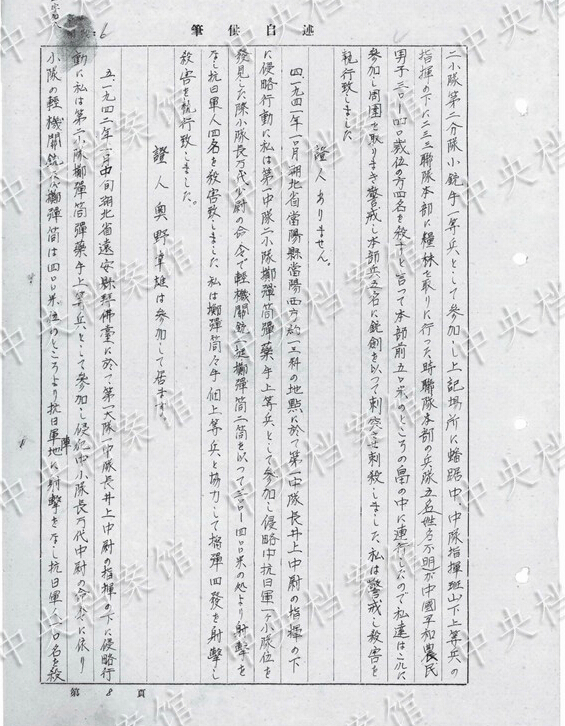 述自供筆
二小隊第二分隊小銃手一等兵として参加し上記場所に蟠踞中、中隊指揮班山下上等兵の
指揮の下に二三三聯隊本部に糧秣を取りに行った時聯隊本部の兵隊五名(姓名不明)が中國平和農民
男子三〇―四〇歳位の方四名を殺すと言って本部前五〇米のところの畠の中に連行したので私達はこれに
参加し周囲を取りまき警戒し本部兵五名に銃剣を以って刺突させ刺殺しました。私は警戒し殺害を
執行致しました
證人ありません。
四、一九四一年一〇月湖北省當陽縣當陽西方約一三粁の地點に於て第一中隊長井上中尉の指揮の下
に侵略行動に私は第一中隊二小隊擲彈筒彈藥手上等兵として参加し侵略中抗日軍一ケ小隊位を
發見した際小隊長万代少尉の命令で輕機關銃一挺擲彈筒二筒を以って三〇〇―四〇〇米の処より射撃を
なし抗日軍人四名を殺害致しました 私は擲彈筒々手 上等兵と協力して擲彈四發を射撃し
殺害を執行致しました。
證人奥野 雄は参加して居ます。
五、一九四二年 月中旬湖北省遠安縣拜佛臺に於て第一大隊一中隊長井上中尉の指揮の下に侵略行
動に私は第二小隊擲彈筒彈藥手上等兵、として参加し侵犯中小隊長万代中尉の命令に依り
小隊の輕機關銃 擲彈筒は四〇〇米位のところより抗日軍陣地に射撃をなし抗日軍人二〇名を殺
第8頁
中央档案馆